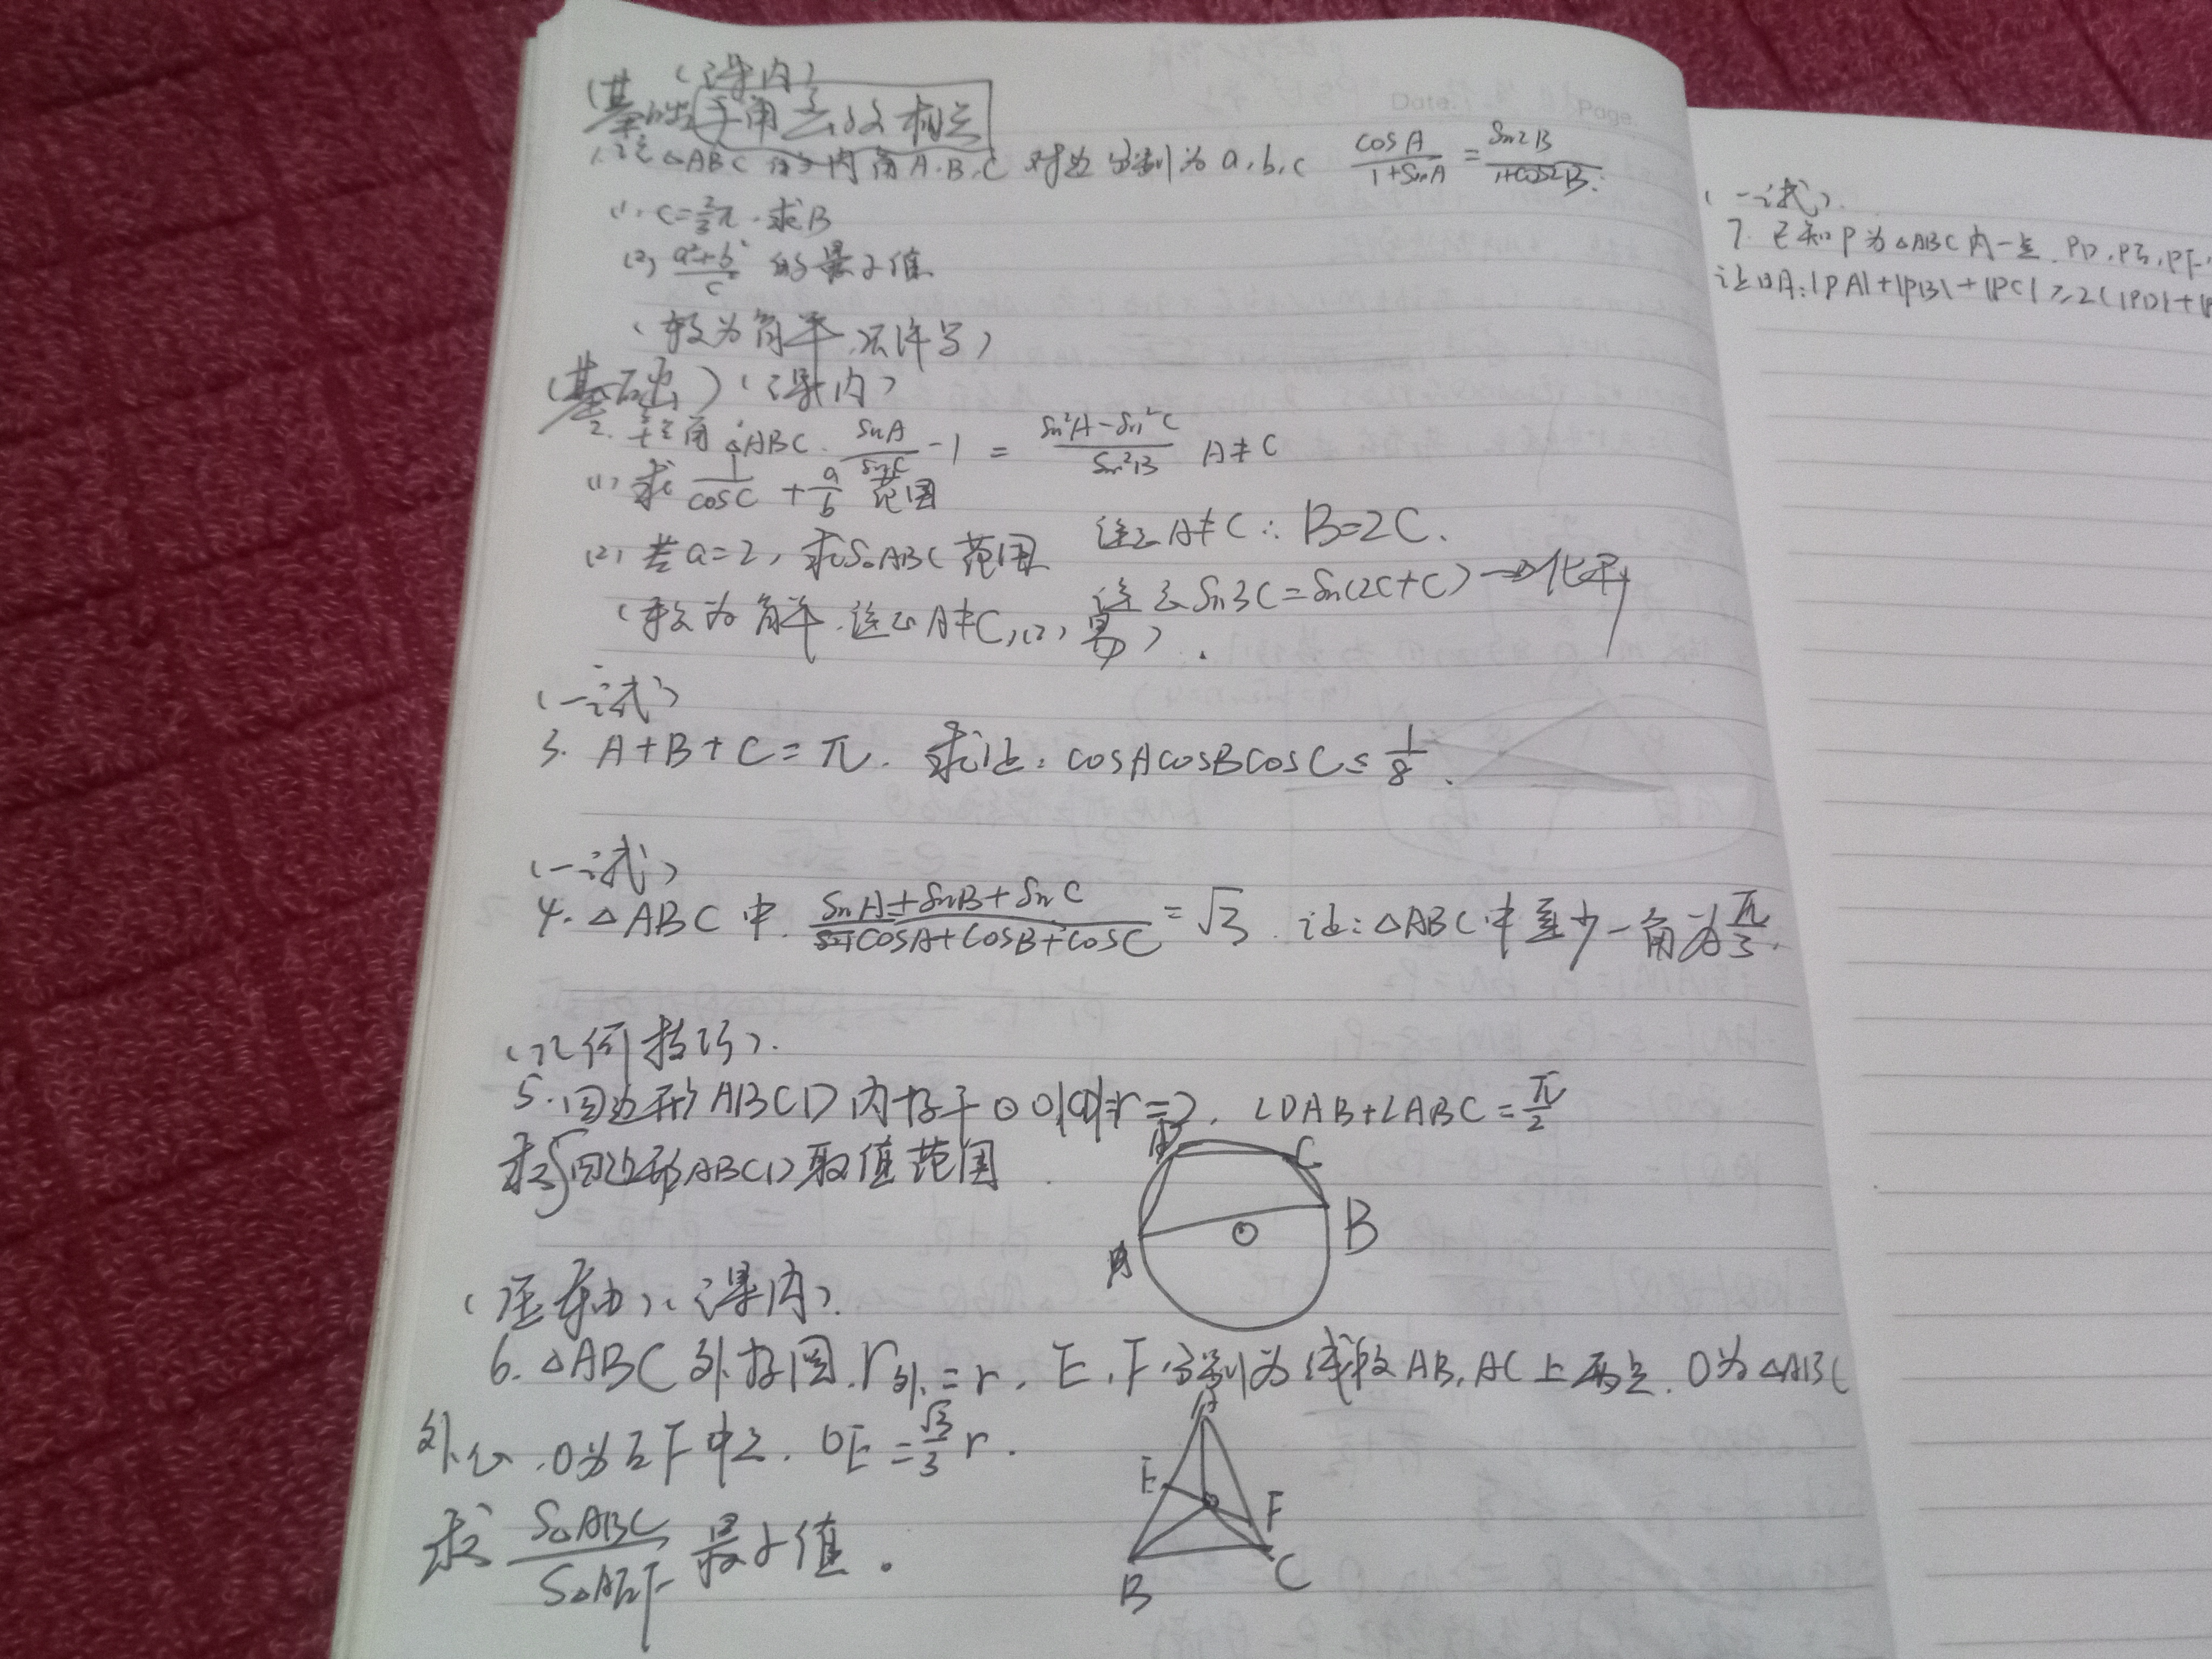 (课内)
(基础)
三角函数相关
1.记△ABC的内角A.B.C 对边分别为a,b,c cosA/1+sinA = sin2B/1+cos2B.
(1). c=2/3π.求B
(2) a²+b²/c² 的最小值
(较为简单.不详写)
(基础)(课内)
2. 锐角△ABC. sinA/sinC -1 = sin²A-sin²C/sin²B A≠C
(1) 求 1/cosC + a/b 范围
(2) 若a=2, 求S△ABC范围 注意A≠C∴B=2C.
(较为简单.注意A≠C,(2)易) 注意sin3C=sin(2C+C)→化开
(一试)
3. A+B+C=π. 求证: cosAcosBcosC≤1/8.
(一试)
4. △ABC中. sinA+sinB+sinC/cosA+cosB+cosC = √3. 证:△ABC中至少一角为π/3.
(几何技巧).
5. 四边形ABCD内接于⊙O,|CD|=r=2. ∠DAB+∠ABC=π/2
求S四边形ABCD取值范围.
D C
A O B
(压轴)(课内).
6. △ABC外接圆.r外=r. E,F分别为线段AB,AC上两点. O为△ABC
外心.O为EF中点. OE=√3/3 r.
求 S△ABC/S△AEF 最小值.
A
E O F
B C
(一试).
7. 已知P为△ABC内一点. PD,PE,PF
证明:|PA|+|PB|+|PC|≥2(|PD|+|P